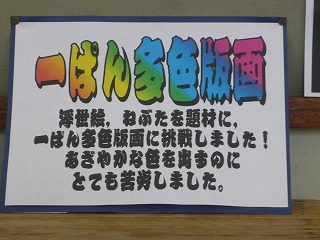 一ぱん多色版画
浮世絵、ねぶたを題材に、
一ぱん多色版画に挑戦しました！
あざやかな色を出すのに
とても苦労しました。